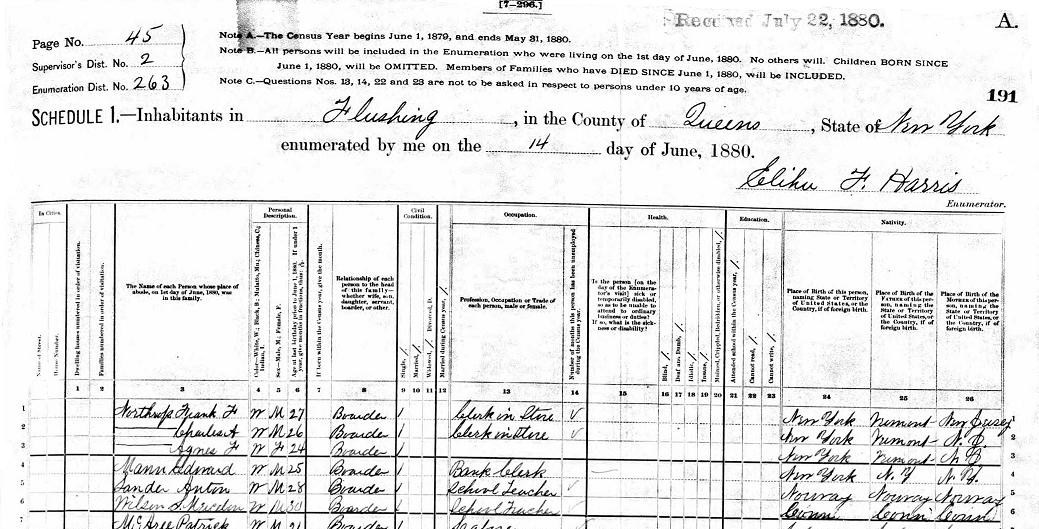 [7-296.]
Received July 22, 1880.
A.
Page No. 45
Supervisor's Dist. No. 2
Enumeration Dist. No. 263
Note A.—The Census Year begins June 1, 1879, and ends May 31, 1880.
Note B.—All persons will be included in the Enumeration who were living on the 1st day of June, 1880. No others will. Children BORN SINCE
June 1, 1880, will be OMITTED. Members of Families who have DIED SINCE June 1, 1880, will be INCLUDED.
Note C.—Questions Nos. 13, 14, 22 and 23 are not to be asked in respect to persons under 10 years of age.
191
SCHEDULE 1.—Inhabitants in Flushing, in the County of Queens, State of New York
enumerated by me on the 14 day of June, 1880.
Elihu F. Harris
Enumerator.
In Cities. Personal Description. Civil Condition. Occupation. Health. Education. Nativity.
Name of Street.
House Number.
Dwelling houses numbered in order of visitation.
Families numbered in order of visitation.
The Name of each Person whose place of
abode, on 1st day of June, 1880, was
in this family.
Color—White, W.; Black, B.; Mulatto, Mu.; Chinese, C.;
Indian, I.
Sex—Male, M.; Female, F.
Age at last birthday prior to June 1, 1880. If under 1
year, give months in fractions, thus:
If born within the Census year, give the month.
Relationship of each
person to the head
of this family—
whether wife, son,
daughter, servant,
boarder, or other.
Single, /
Married, /
Widowed, / Divorced, D.
Married during Census year, /
Profession, Occupation or Trade of
each person, male or female.
Number of months this person has been unemployed
during the Census year.
Is the person [on the
day of the Enumera-
tor's visit] sick or
temporarily disabled,
so as to be unable to
attend to ordinary
business or duties?
If so, what is the sick-
ness or disability?
Blind, /
Deaf and Dumb, /
Idiotic, /
Insane, /
Maimed, Crippled, Bedridden, or otherwise disabled, /
Attended school within the Census year, /
Cannot read, /
Cannot write, /
Place of Birth of this person,
naming State or Territory
of United States, or the
Country, if of foreign birth.
Place of Birth of the
FATHER of this per-
son, naming the
State or Territory
of United States, or
the Country, if of
foreign birth.
Place of Birth of the
MOTHER of this per-
son, naming the
State or Territory
of United States, or
the Country, if of
foreign birth.
1 2 3 4 5 6 7 8 9 10 11 12 13 14 15 16 17 18 19 20 21 22 23 24 25 26
1 Northrop Frank F W M 27 Boarder / Clerk in Store New York New Jersey 1
2 Charles A W M 26 Boarder / Clerk in Store New York 2
3 Agnes F W F 24 Boarder / New York 3
4 Mann Edward W M 25 Boarder / Bank Clerk New York N.Y N.Y. 4
5 Sander Anton W M 28 Boarder / School Teacher Norway Norway Norway 5
6 Wilson W M 30 Boarder / School Teacher Conn Conn Conn 6
7 Patrick W M